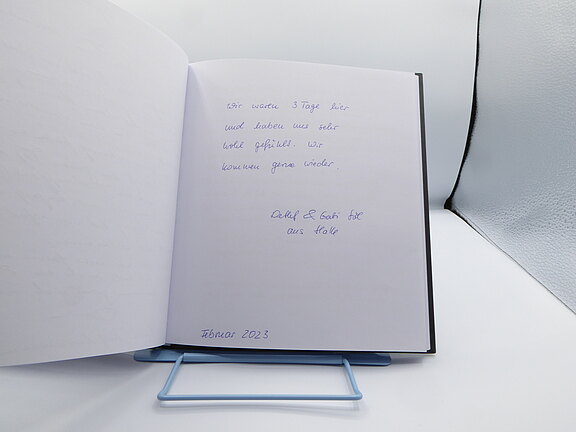 Wir waren 3 Tage hier
und haben uns sehr
wohl gefühlt. Wir
kommen gerne wieder.
Detlef & Gabi
aus Halle
Februar 2023